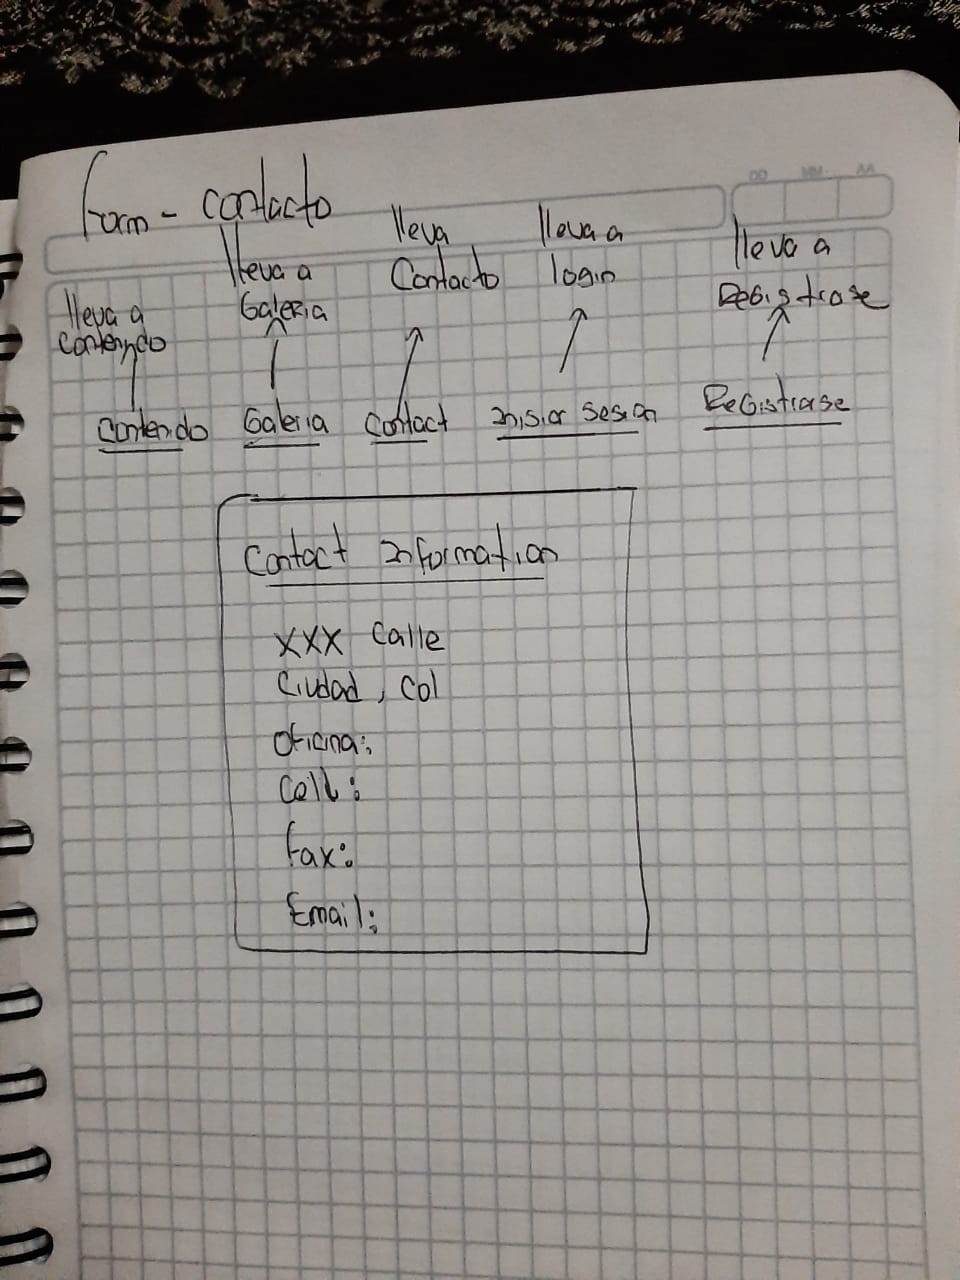 Form - contacto
lleva a
contenido
lleva a
Galeria
lleva
Contacto
lleva a
login
lleva a
Registrase
Contenido Galeria Contact Inisiar sesion Registrarse
Contact Information
XXX Calle
Ciudad, Col
Oficina:
Cell:
Fax:
Email:
DD MM AA